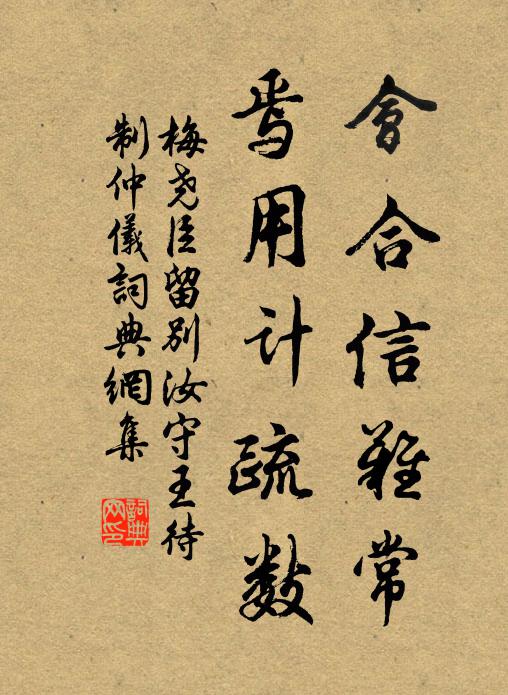 會合信難常
焉用计疏數
梅尧臣留别汝守王待
制仲儀詞典網集
詞典
网印